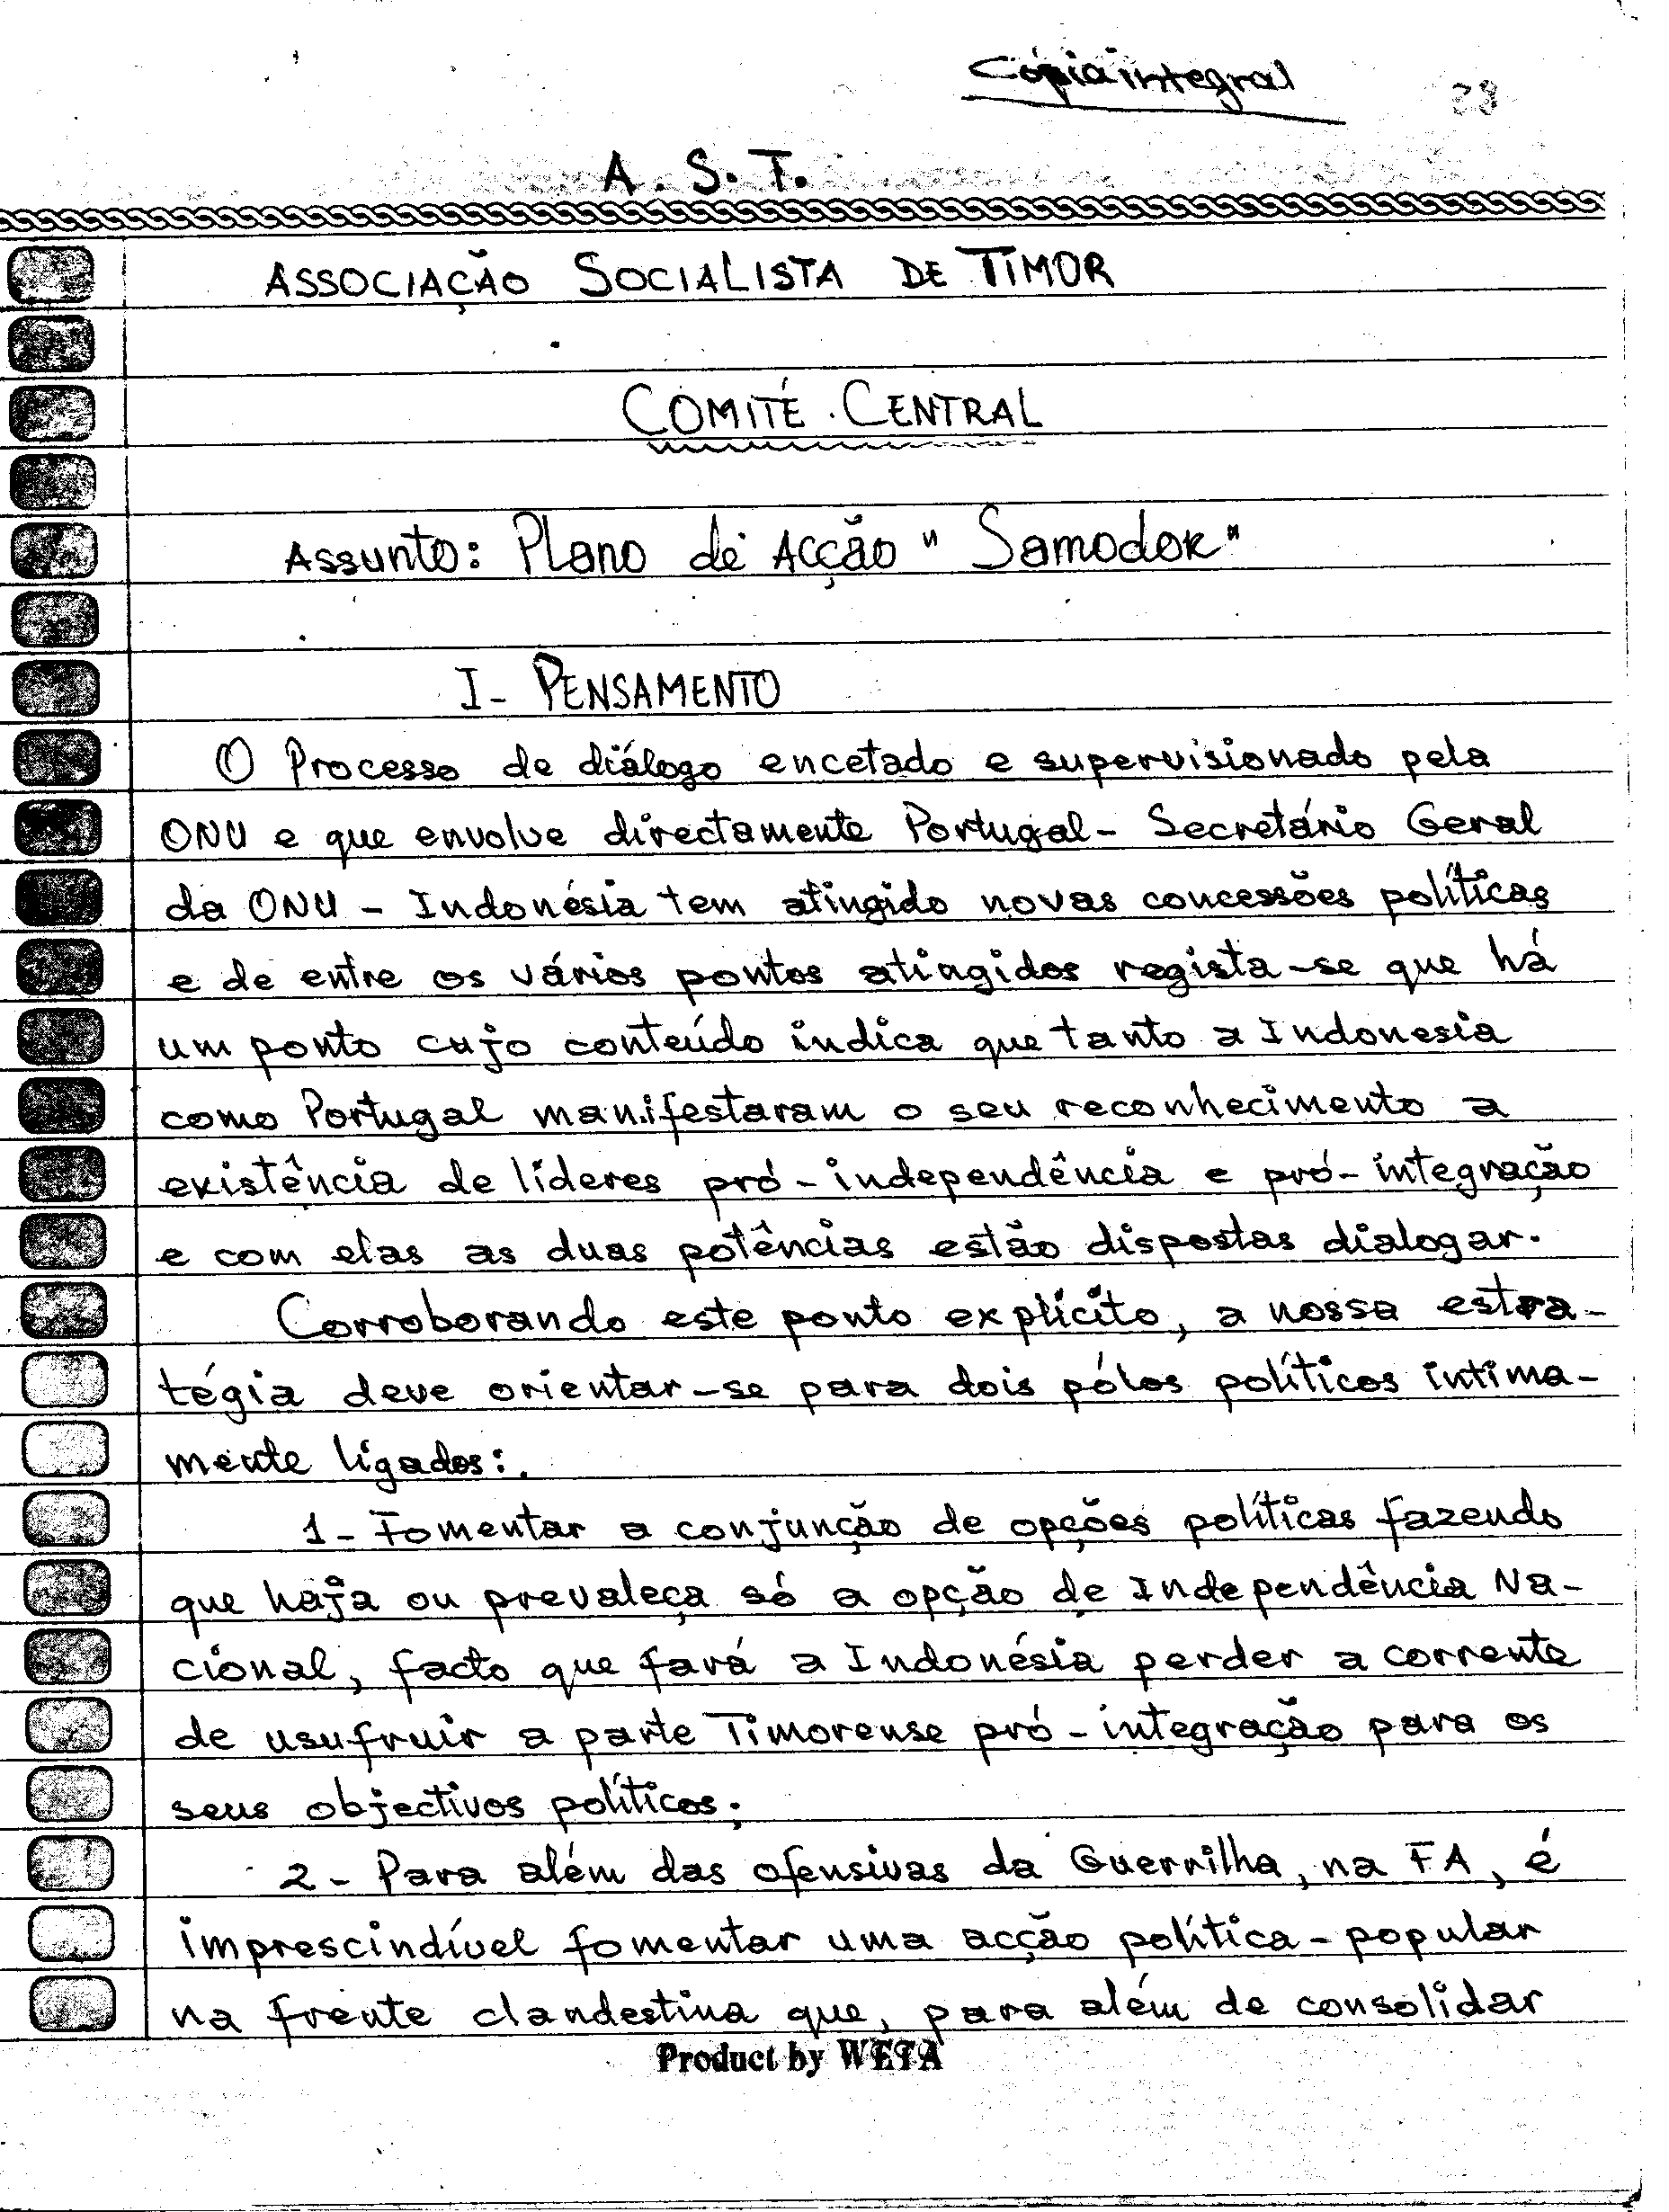 Cópia integral
A. S. T.
ASSOCIAÇÃO SOCIALISTA DE TIMOR
COMITÉ CENTRAL
Assunto: Plano de Acção "Samodok"
I - PENSAMENTO
O Processo de diálogo encetado e supervisionado pela
ONU e que envolve directamente Portugal - Secretário Geral
da ONU - Indonésia tem atingido novas concessões políticas
e de entre os vários pontos atingidos regista-se que há
um ponto cujo conteúdo indica que tanto a Indonesia
como Portugal manifestaram o seu reconhecimento a
existência de líderes pró-independência e pró-integração
e com elas as duas potências estão dispostas dialogar.
Corroborando este ponto explícito, a nossa estra-
tégia deve orientar-se para dois pólos políticos intima-
mente ligados:
1 - Fomentar a conjunção de opções políticas fazendo
que haja ou prevaleça só a opção de Independência Na-
cional, facto que fará a Indonésia perder a corrente
de usufruir a parte Timorense pró-integração para os
seus objectivos políticos;
2 - Para além das ofensivas da Guerrilha, na FA, é
imprescindível fomentar uma acção política-popular
na frente clandestina que, para além de consolidar
Product by WETA